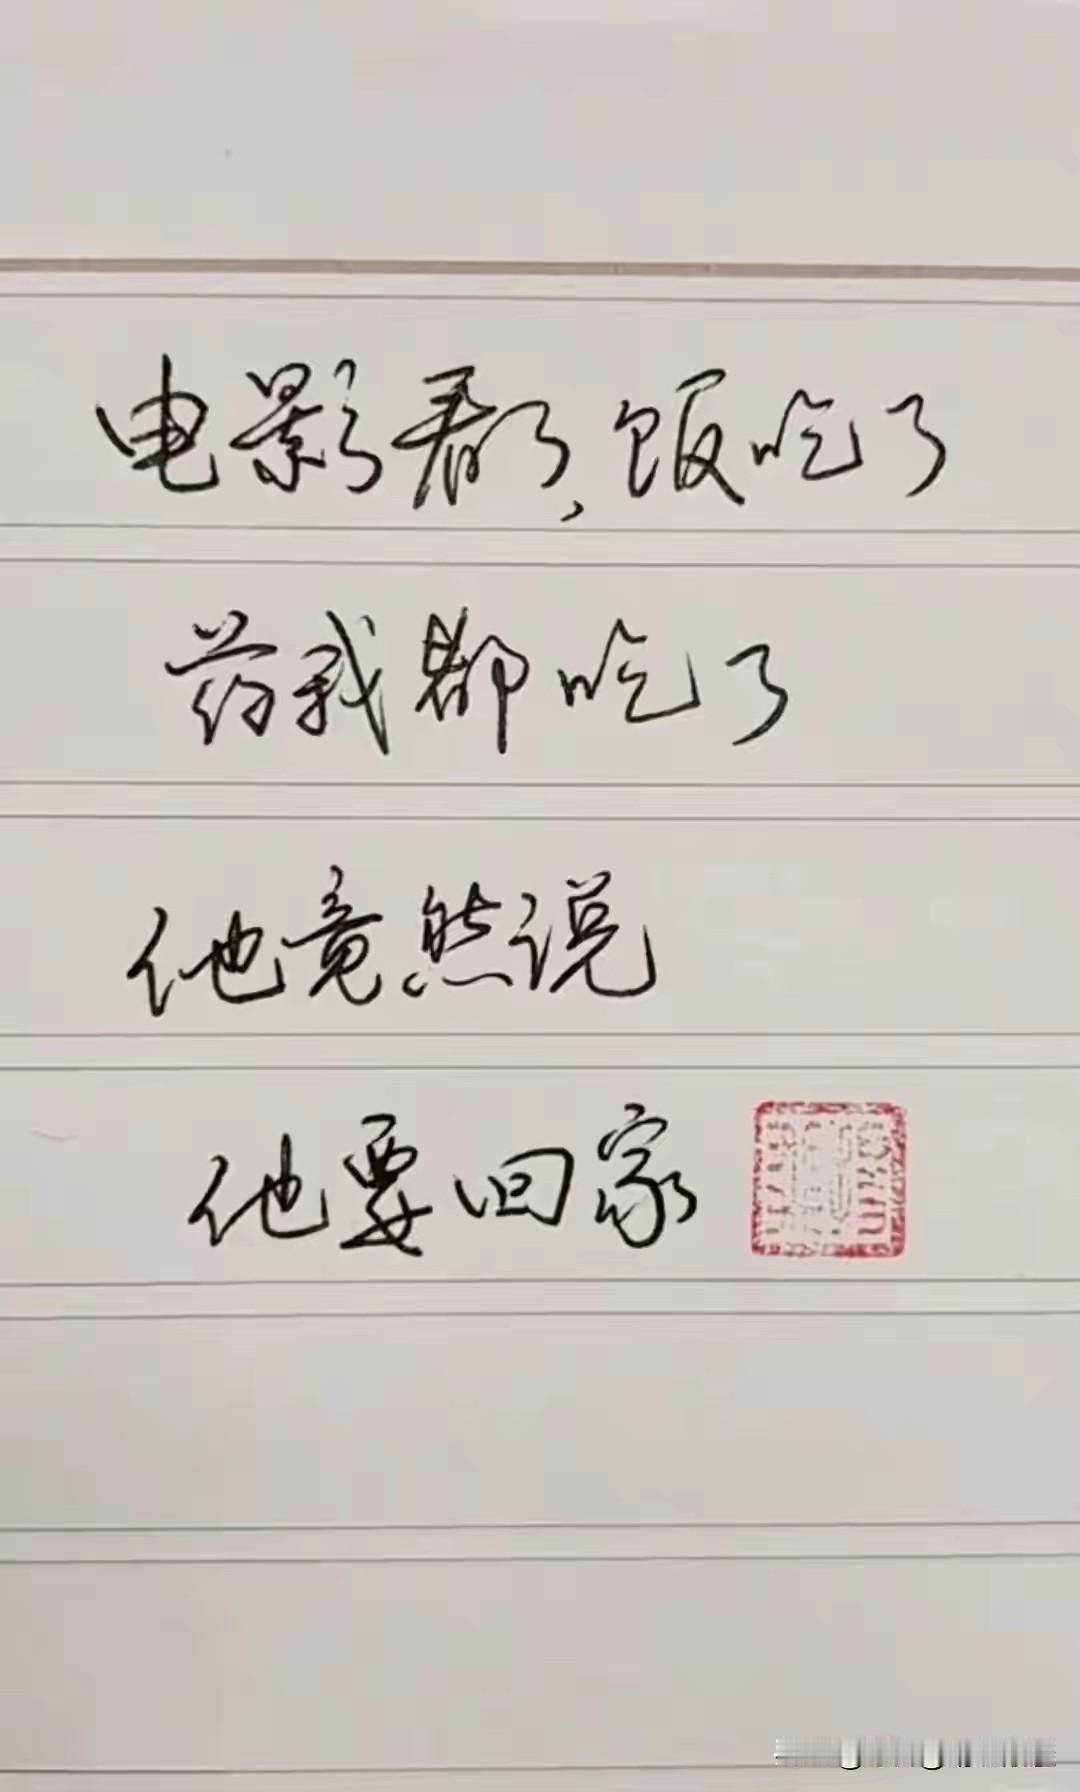 电影看了，饭吃了
药我都吃了
他竟然说
他要回家